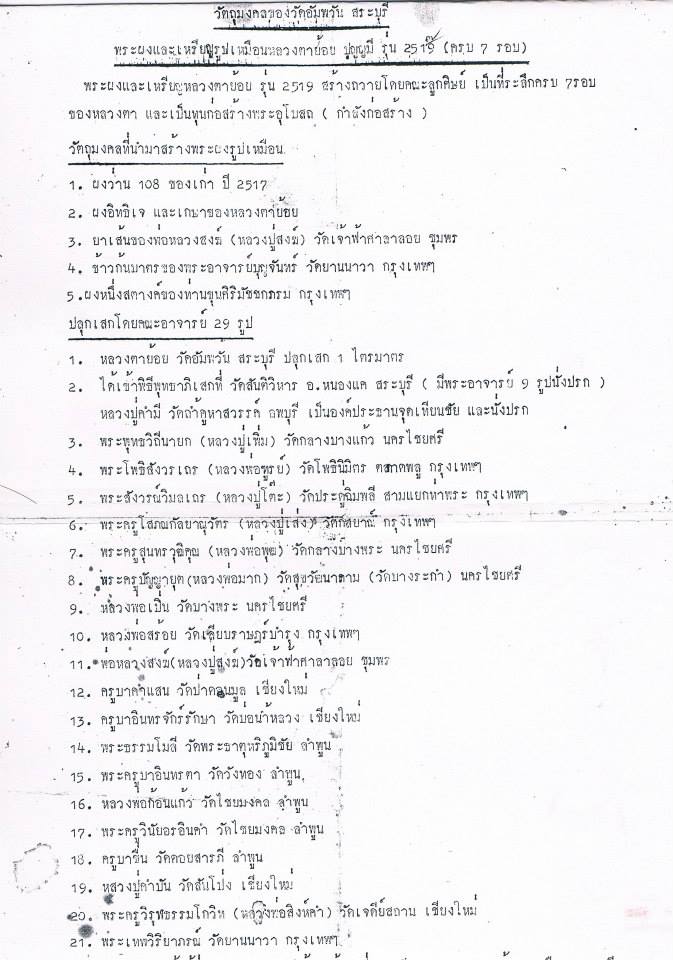 วัตถุมงคลของวัดอัมพวัน สระบุรี
พระผงและเหรียญรูปเหมือนหลวงตาย้อย ปุญญมี รุ่น 2519 (ครบ 7 รอบ)
พระผงและเหรียญหลวงตาย้อย รุ่น 2519 สร้างถวายโดยคณะลูกศิษย์ เป็นที่ระลึกครบ 7รอบ
ของหลวงตา และเป็นทุนก่อสร้างพระอุโบสถ ( กำลังก่อสร้าง )
วัตถุมงคลที่นำมาสร้างพระผงรูปเหมือน
1. ผงว่าน 108 ของเก่า ปี 2517
2. ผงอิทธิเจ และเกษาของหลวงตาย้อย
3. ยาเส้นของพ่อหลวงสงฆ์ (หลวงปู่สงฆ์) วัดเจ้าฟ้าศาลาลอย ชุมพร
4. ข้าวก้นบาตรของพระอาจารย์บุญจันทร์ วัดยานนาวา กรุงเทพฯ
5.ผงหนึ่งสตางค์ของท่านขุนศิริมัชชกรรม กรุงเทพฯ
ปลุกเสกโดยคณะอาจารย์ 29 รูป
1. หลวงตาย้อย วัดอัมพวัน สระบุรี ปลุกเสก 1 ไตรมาตร
2. ได้เข้าพิธีพุทธาภิเสกที่ วัดสันติวิหาร อ.หนองแค สระบุรี ( มีพระอาจารย์ 9 รูปนั่งปรก )
หลวงปู่คำมี วัดถ้ำคูหาสวรรค์ ลพบุรี เป็นองค์ประธานจุดเทียนชัย และนั่งปรก
3. พระพุทธวิถีนายก (หลวงปู่เพิ่ม) วัดกลางบางแก้ว นครไชยศรี
4. พระโพธิสังวรเถร (หลวงพ่อฑูรย์) วัดโพธินิมิตร ตลาดพลู กรุงเทพฯ
5. พระสังวรณ์วิมลเถร (หลวงปู่โต๊ะ) วัดประดู่ฉิมพลี สามแยกท่าพระ กรุงเทพฯ
6. พระครูโสภณกัลยาณุวัตร (หลวงปู่เส่ง) วัดกัลยาณ์ กรุงเทพฯ
7. พระครูสุนทรวุฒิคุณ (หลวงพ่อพุฒ) วัดกลางบางพระ นครไชยศรี
8. พระครูปัญญายุต(หลวงพ่อมาก) วัดสุขวัฒนาราม (วัดบางระกำ) นครไชยศรี
9. หลวงพ่อเปิ่น วัดบางพระ นครไชยศรี
10. หลวงพ่อสร้อย วัดเลียบราษฎร์บำรุง กรุงเทพฯ
11. พ่อหลวงสงฆ์(หลวงปู่สงฆ์)วัดเจ้าฟ้าศาลาลอย ชุมพร
12. ครูบาคำแสน วัดป่าดอนมูล เชียงใหม่
13. ครูบาอินทรจักร์รักษา วัดบ่อน้ำหลวง เชียงใหม่
14. พระธรรมโมลี วัดพระธาตุหริภุมิชัย ลำพูน
15. พระครูบาอินทรตา วัดวังทอง ลำพูน
16. หลวงพ่อก้อนแก้ว วัดไชยมงคล ลำพูน
17. พระครูวินัยอรอินคำ วัดไชยมงคล ลำพูน
18. ครูบาขึ่น วัดดอยสารภี ลำพูน
19. หลวงปู่คำปัน วัดสันโป่ง เชียงใหม่
20. พระครูวิรุฬธรรมโกวิท (หลวงพ่อสิงห์คำ) วัดเจดีย์สถาน เชียงใหม่
21. พระเทพวิริยาภรณ์ วัดยานนาวา กรุงเทพฯ